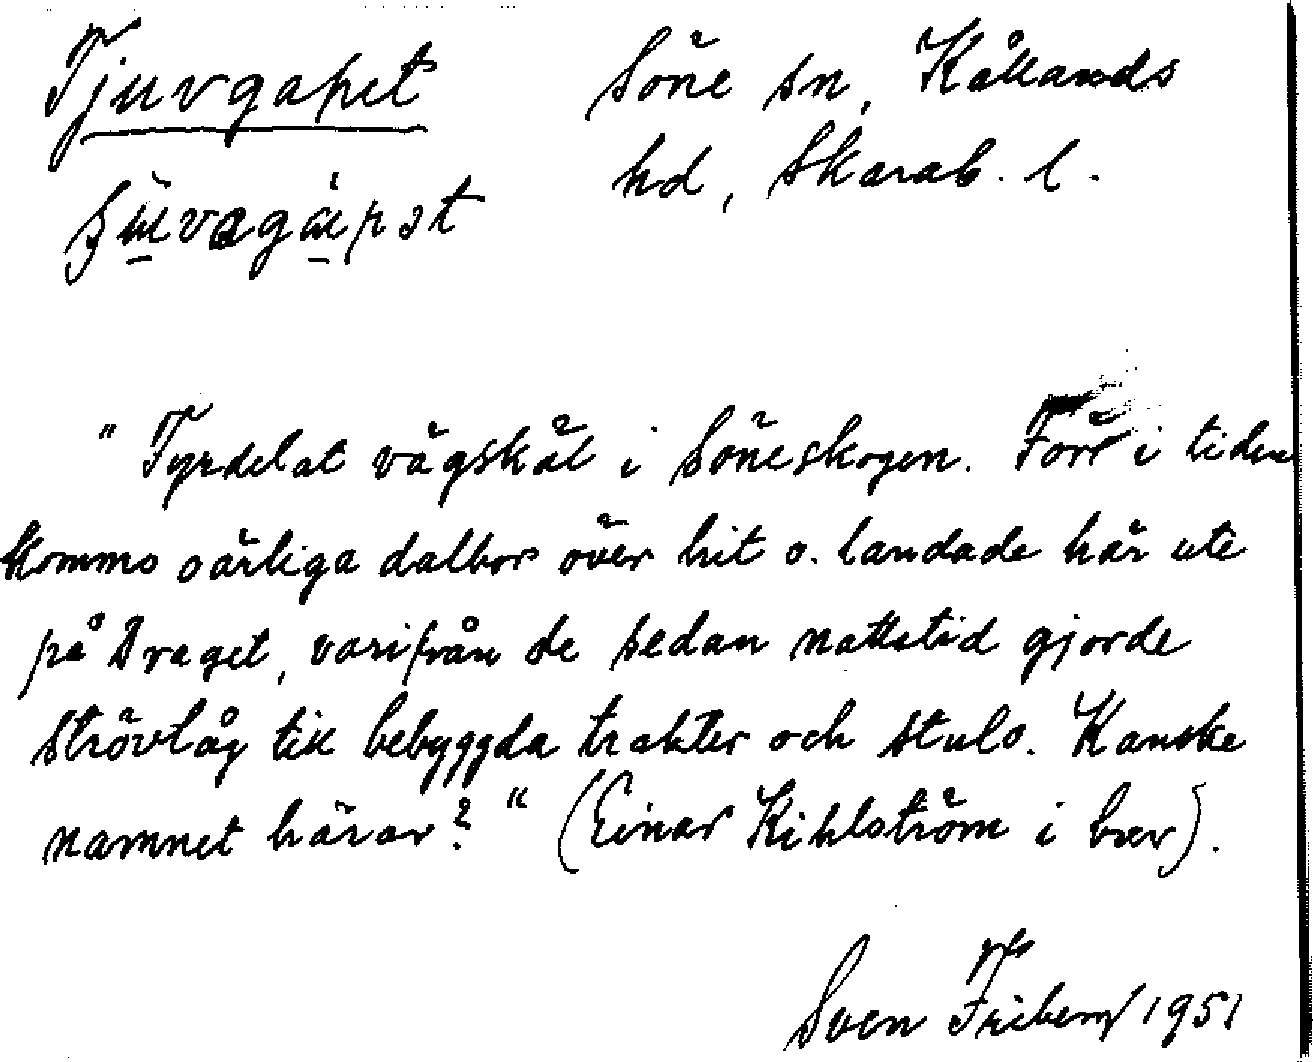 Tjuvgapet Söne sn, Kållands
hd, Skarab. l.
"Fyrdelat vägskäl i Söneskogen. Förr i tiden
kommo oärliga dalbor över hit o. landade här ute
på Draget, varifrån de sedan nattetid gjorde
strövtåg till bebyggda trakter och stulo. Kanske
namnet härav?" (Einar Kihlström i brev).
Sven Friberg 1951